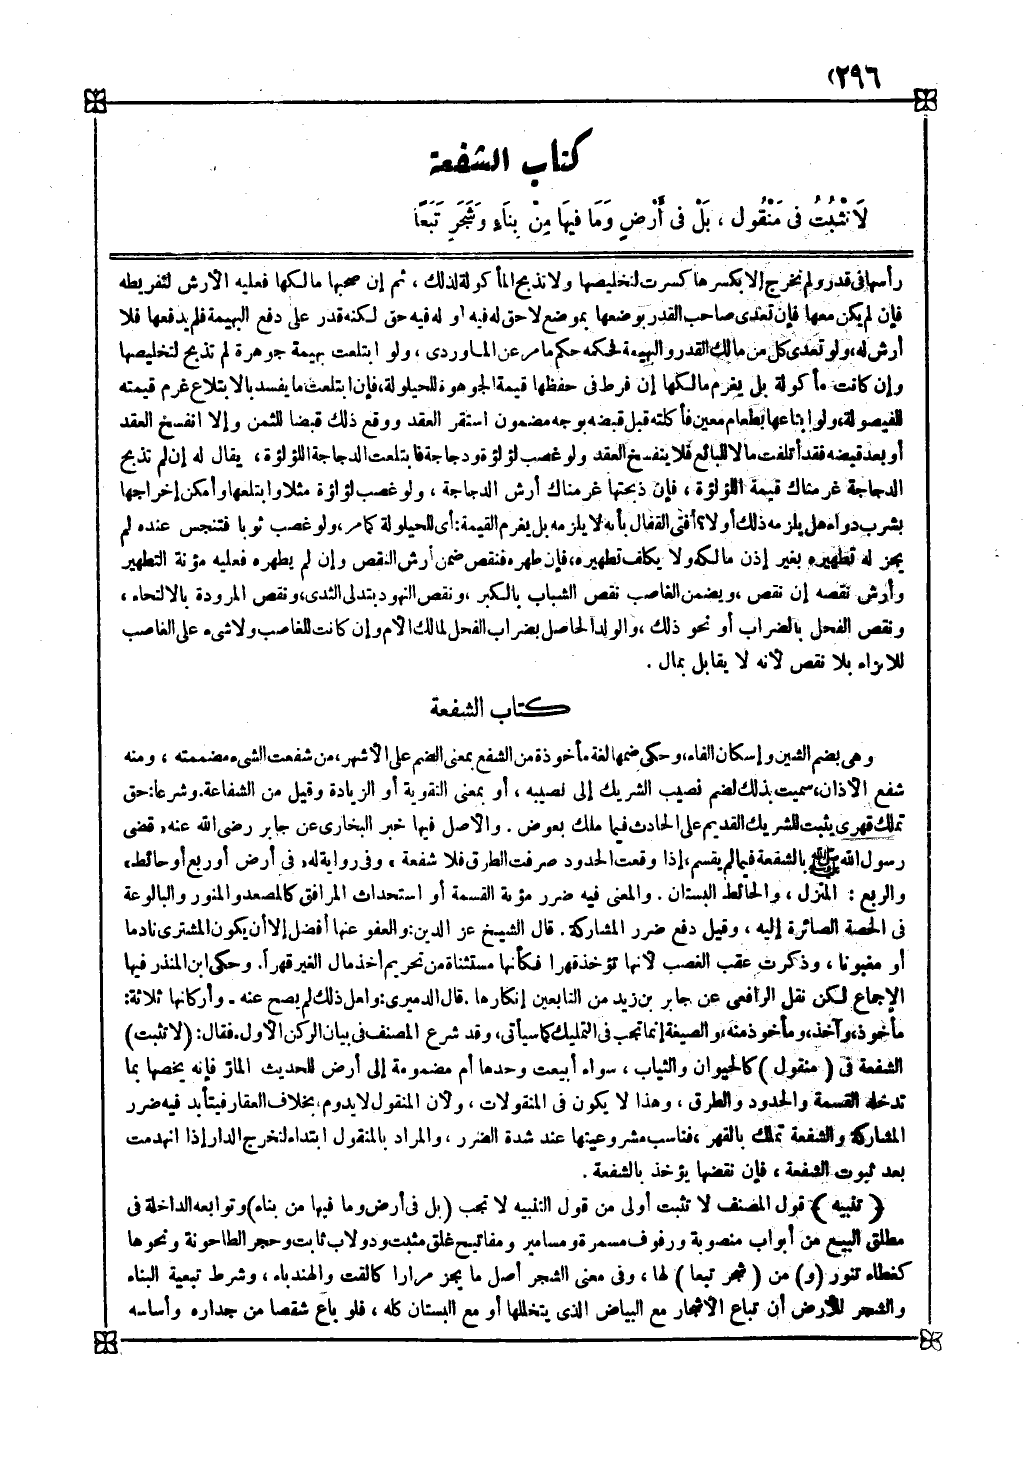 (٢٩٦
كتاب الشفعة
لَا تَثْبُتُ فِى مَنْقُول ، بَلْ فِى أَرْضٍ وَمَا فِيهَا مِنْ بِنَاءٍ وَشَجَرٍ تَبَعًا
رأسها فى قدر ولم تخرج إلا بكسرها كسرت لتخليصها ولا تذبح المأكولة لذلك ، ثم إن صحبها مالكها فعليه الأرش لتفريطه
فإن لم يكن معها فإن تعدى صاحب القدر بوضعها بموضع لا حق له فيه أو له فيه حق لكنه قدر على دفع البهيمة فلم يدفعها فلا
أرش له ، ولو تعدى كل من مالك القدر والبهيمة فحكمه حكم ما مر عن الماوردى ، ولو ابتلعت بهيمة جوهرة لم تذبح لتخليصها
وإن كانت مأكولة بل يغرم مالكها إن فرط فى حفظها قيمة الجوهرة للحيلولة ، فإن ابتلعت ما يفسد بالابتلاع غرم قيمته
للفيصولة ، ولو ابتاعها بطعام معين فأكلته قبل قبضه بوجه مضمون استقر العقد ووقع ذلك قبضا للثمن وإلا انفسخ العقد
أو بعد قبضه فقد أتلفت مالا للبائع فلا ينفسخ العقد ولو غصب لؤلؤة ودجاجة فابتلعت الدجاجة اللؤلؤة ، يقال له إن لم تذبح
الدجاجة غرمناك قيمة اللؤلؤة ، فإن ذبحتها غرمناك أرش الدجاجة ، ولو غصب لؤلؤة مثلا وابتلعها وأمكن إخراجها
بشرب دواء هل يلزمه ذلك أو لا؟ أفتى القفال بأنه لا يلزمه بل يغرم القيمة : أى للحيلولة كما مر ، ولو غصب ثوبا فتنجس عنده لم
يجز له تطهيره بغير إذن مالكه ولا يكلف تطهيره ، فإن طهره فنقص ضمن أرش النقص وإن لم يطهره فعليه مؤنة التطهير
وأرش نقصه إن نقص ، ويضمن الغاصب نقص الشباب بالكبر ، ونقص النهود بتدلى الثدى ، ونقص المرودة بالالتحاء ،
ونقص الفحل بالضراب أو نحو ذلك ، والولد الحاصل بضراب الفحل لمالك الأم وإن كانت للغاصب ولا شىء على الغاصب
للانزاء بلا نقص لأنه لا يقابل بمال .
كتاب الشفعة
وهى بضم الشين وإسكان الفاء ، وحكى ضمها لغة مأخوذة من الشفع بمعنى الضم على الأشهر ، من شفعت الشىء ضممته ، ومنه
شفع الأذان ، سميت بذلك لضم نصيب الشريك إلى نصيبه ، أو بمعنى التقوية أو الزيادة وقيل من الشفاعة . وشرعا : حق
تملك قهرى يثبت للشريك القديم على الحادث فيما ملك بعوض . والأصل فيها خبر البخارى عن جابر رضى الله عنه « قضى
رسول الله ﷺ بالشفعة فيما لم يقسم ، إذا وقعت الحدود صرفت الطرق فلا شفعة » وفى رواية له « فى أرض أو ربع أو حائط »
والربع : المنزل ، والحائط البستان . والمعنى فيه ضرر مؤنة القسمة أو استحداث المرافق كالمصعد والمنور والبالوعة
فى الحصة الصائرة إليه ، وقيل دفع ضرر المشاركة . قال الشيخ عز الدين : والعفو عنها أفضل إلا أن يكون المشترى نادما
أو مغبونا ، وذكرت عقب الغصب لأنها تؤخذ قهرا فكأنها مستثناة من تحريم أخذ مال الغير قهرا . وحكى ابن المنذر فيها
الإجماع لكن نقل الرافعى عن جابر بن زيد من التابعين إنكارها . قال الدميرى : ولعل ذلك لم يصح عنه . وأركانها ثلاثة :
مأخوذ ، وآخذ ، ومأخوذ منه ، والصيغة إنما تجب فى التمليك كما سيأتى ، وقد شرع المصنف فى بيان الركن الأول . فقال : (لا تثبت)
الشفعة فى (منقول) كالحيوان والثياب ، سواء أبيعت وحدها أم مضمومة إلى أرض للحديث المارّ فإنه يخصها بما
تدخله القسمة والحدود والطرق ، وهذا لا يكون فى المنقولات ، ولأن المنقول لا يدوم ، بخلاف العقار فيتأبد فيه ضرر
المشاركة والشفعة تملك بالقهر ، فناسب مشروعيتها عند شدة الضرر ، والمراد بالمنقول ابتداء لنخرج الدار إذا انهدمت
بعد ثبوت الشفعة ، فإن نقضها يؤخذ بالشفعة .
﴿ تنبيه ﴾ قول المصنف لا تثبت أولى من قول التنبيه لا تجب (بل فى أرض وما فيها من بناء) وتوابعه الداخلة فى
مطلق البيع من أبواب منصوبة ورفوف مسمرة ومسامير ومفاتيح غلق مثبت ودولاب ثابت وحجر الطاحونة ونحوها
كغطاء تنور (و) من (شجر تبعا) لها ، وفى معنى الشجر أصل ما يجز مرارا كالقت والهندباء ، وشرط تبعية البناء
والشجر للأرض أن تباع الأشجار مع البياض الذى يتخللها أو مع البستان كله ، فلو باع شقصا من جداره وأساسه